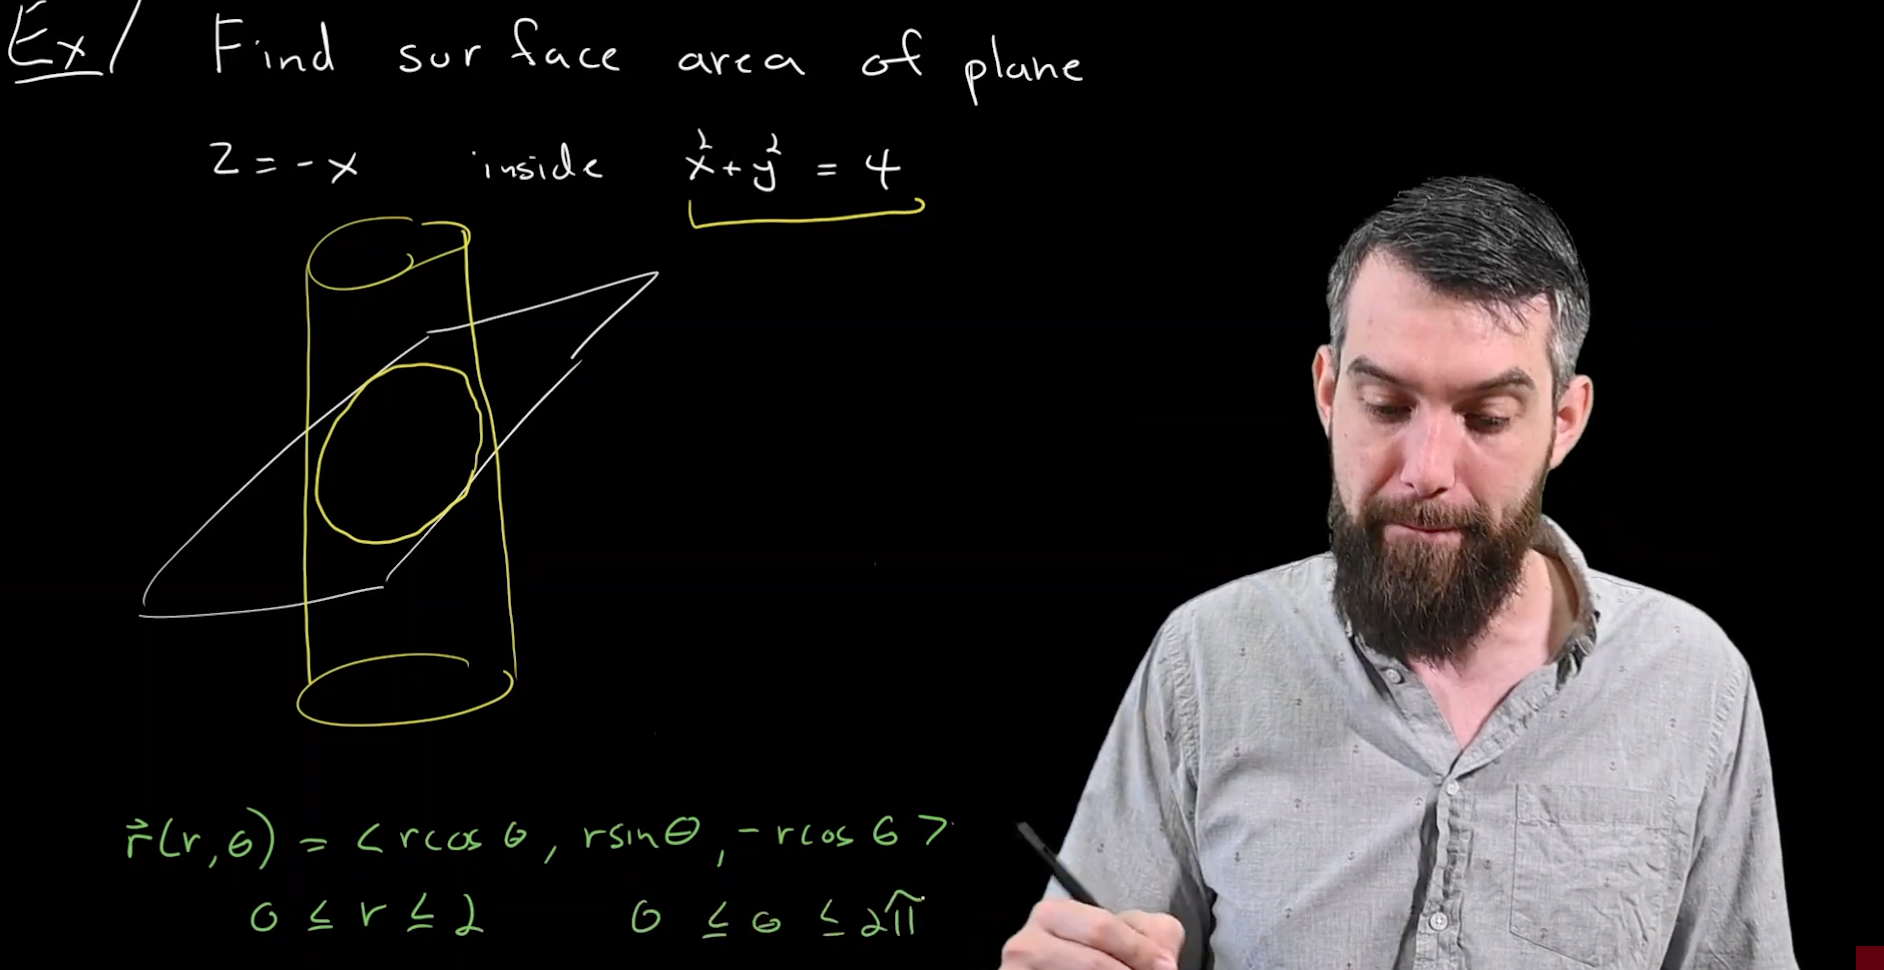 Ex/ Find surface area of plane
z = -x inside x² + y² = 4
r⃗(r, θ) = <r cos θ, r sin θ, -r cos θ>
0 ≤ r ≤ 2 0 ≤ θ ≤ 2π